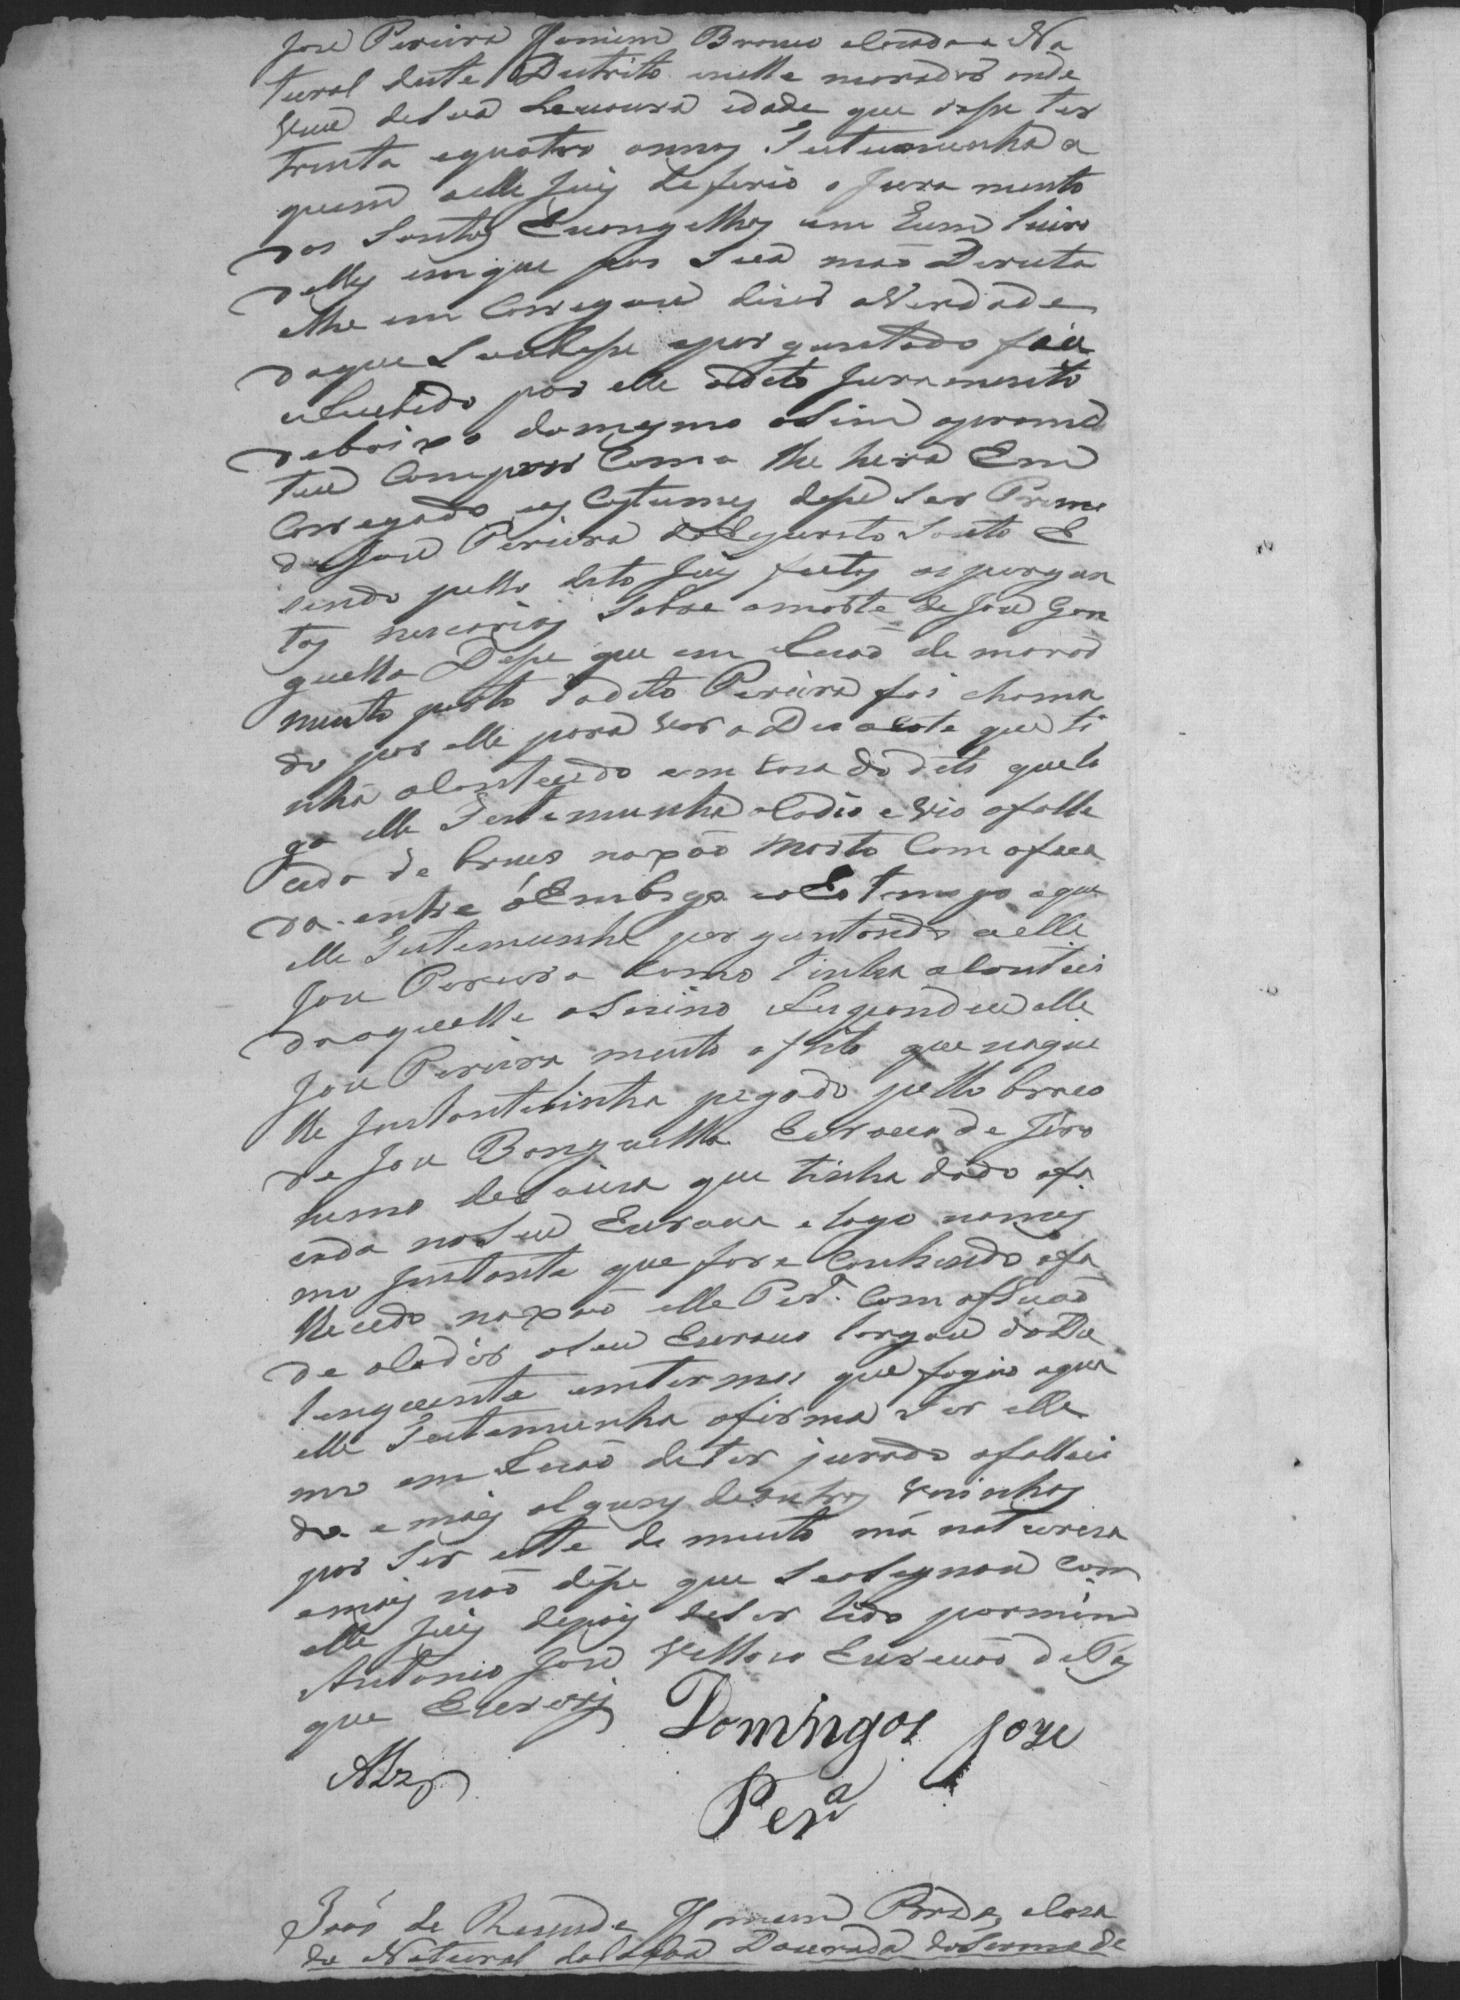 Joze Pereira Homem Branco cazado e Na
tural deste Destrito enelle morador onde
vive desua Lavoura idade que dise ter
trinta equatro annos Testemunha a
quem aelle Juiz deferio o Jura mento
dos Santos Euangelhos em hum Livro
delles emque pos Sua mão Direita
elhe em Carregou diser averdade
doque Soubese eper guntado foce
eSuebido por elle odito Juramento
debaixo domesmo aSim aprome
teu Comprir Como lhe hera Em
Carregado eos Costumes dise Ser Primo
de Jose Pereira
sendo pello dito Juiz feitas as pergun
tas necesarias Sobre amorte de Joze Gon
guella Dise que em rezão de morar
muito perto dodito Pereira foi chama
do por elle para ver o Dezaste que ti
nha acontecido em Caza do dito que lo
go elle Testemunha acodio e vio ofalle
cido de brucos noxão morto Com afaca
da entre o Embigo eo Estomago e que
elle Testemunha per guntando a elle
Joze Pereira como tinha aconteci
do aquelle aSasino Respondeu elle
Joze Pereira muito aflito que naque
lle Instante tinha pegado pello braco
de Joze Bonguella Escravo de Jero
nimo deSouza que tinha dado afa
cada noSeu Escravo elogo nomes
mo Instante que fora Conhecido ofa
llecido noxão elle Per.ª Com afSicão
de acodir aSeu Escravo largou do De
linquente emtermos que fogio eque
elle Testemunha afirma Ser elle
mo em Rezão deter jurado ofalleci
do e mais alguns de outros vezinhos
por Ser este de muito má natureza
emais não dise que Seasignou Com
elle Juiz depois deSer lido pormim
Antonio Joze Vellozo Escrivão da Pas
que Escrevy
Domingos Joze
Alz
Per.ª
João de Rezende Homem Pardo, Caza
do Natural dalagoa Dourada doTermo de